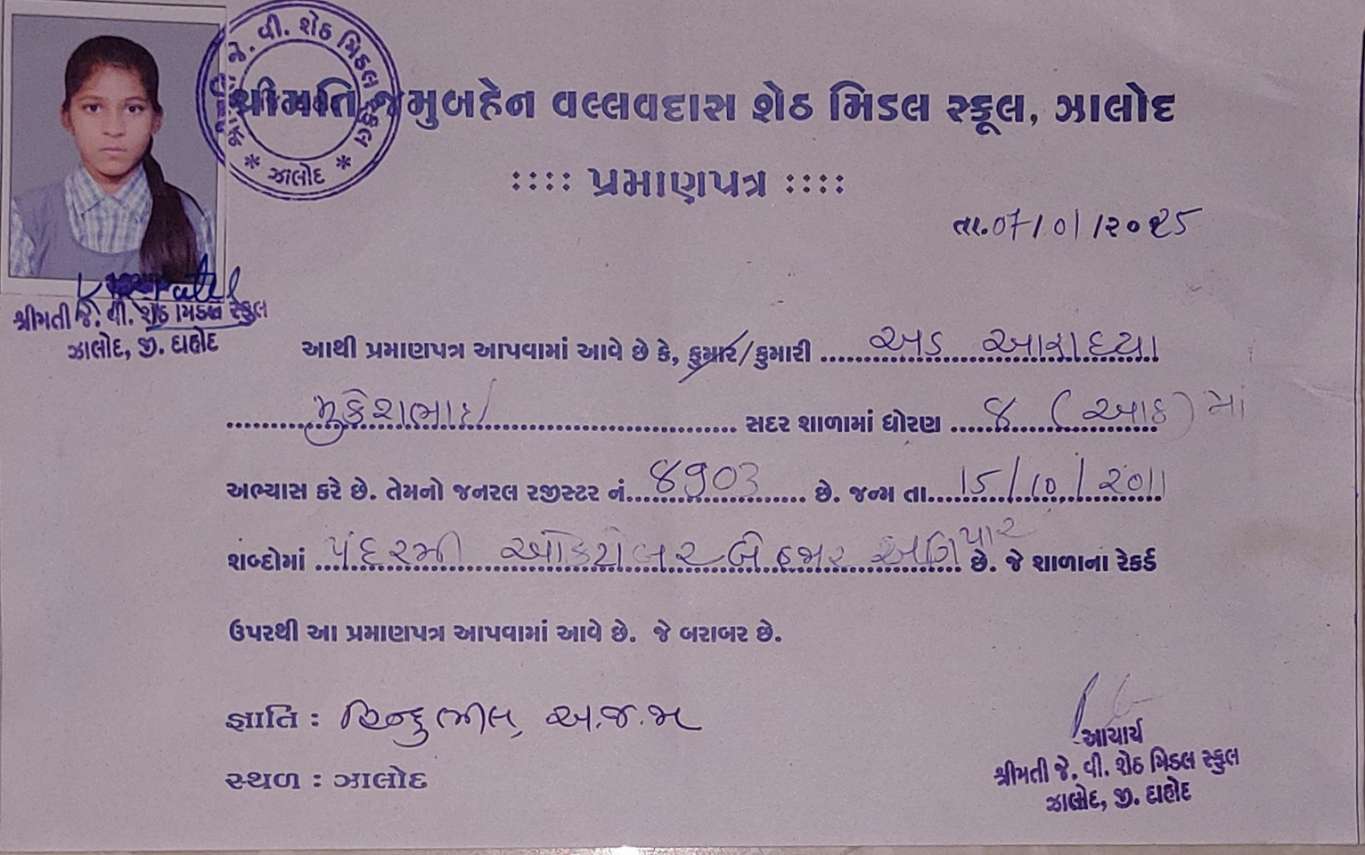 શ્રીમતિ જે. વી. શેઠ મિડલ સ્કૂલ * ઝાલોદ *
શ્રીમતિ જમુબહેન વલ્લવદાસ શેઠ મિડલ સ્કૂલ, ઝાલોદ
:::: પ્રમાણપત્ર ::::
તા.07/01/૨૦૨5
શ્રીમતી જે. વી. શેઠ મિડલ સ્કુલ
ઝાલોદ, જી. દાહોદ
આથી પ્રમાણપત્ર આપવામાં આવે છે કે, કુમાર/કુમારી ........ અડ આરાધ્યા
........ મુકેશભાઈ ........ સદર શાળામાં ધોરણ ........ ૪ (આઠ) માં
અભ્યાસ કરે છે. તેમનો જનરલ રજીસ્ટર નં. ૪903 છે. જન્મ તા. 15/10/૨૦11
શબ્દોમાં પંદરમી ઓકટોબર બે હજાર અગિયાર છે. જે શાળાના રેકર્ડ
ઉપરથી આ પ્રમાણપત્ર આપવામાં આવે છે. જે બરાબર છે.
જ્ઞાતિ : હિન્દુ ભીલ, અ.જ.જા
સ્થળ : ઝાલોદ
આચાર્ય
શ્રીમતી જે. વી. શેઠ મિડલ સ્કુલ
ઝાલોદ, જી. દાહોદ